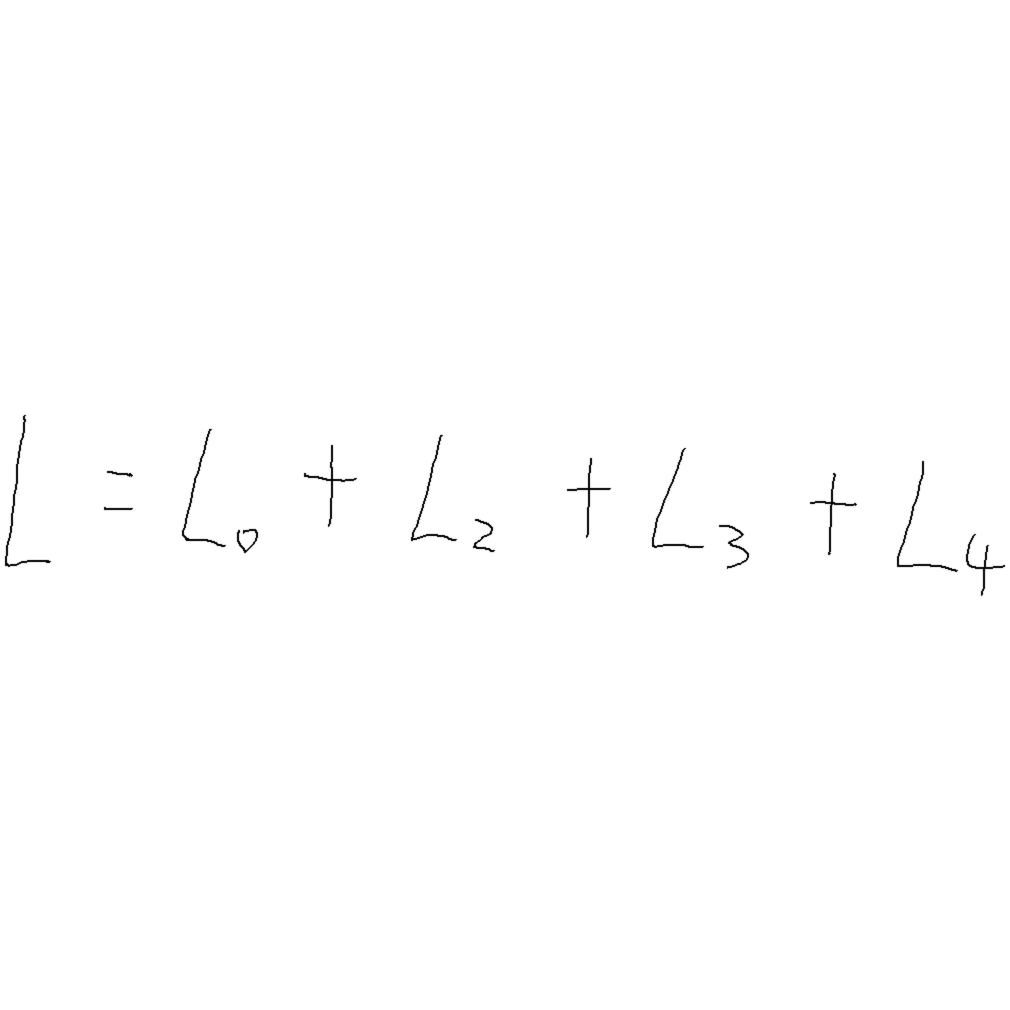 L = L₀ + L₂ + L₃ + L₄